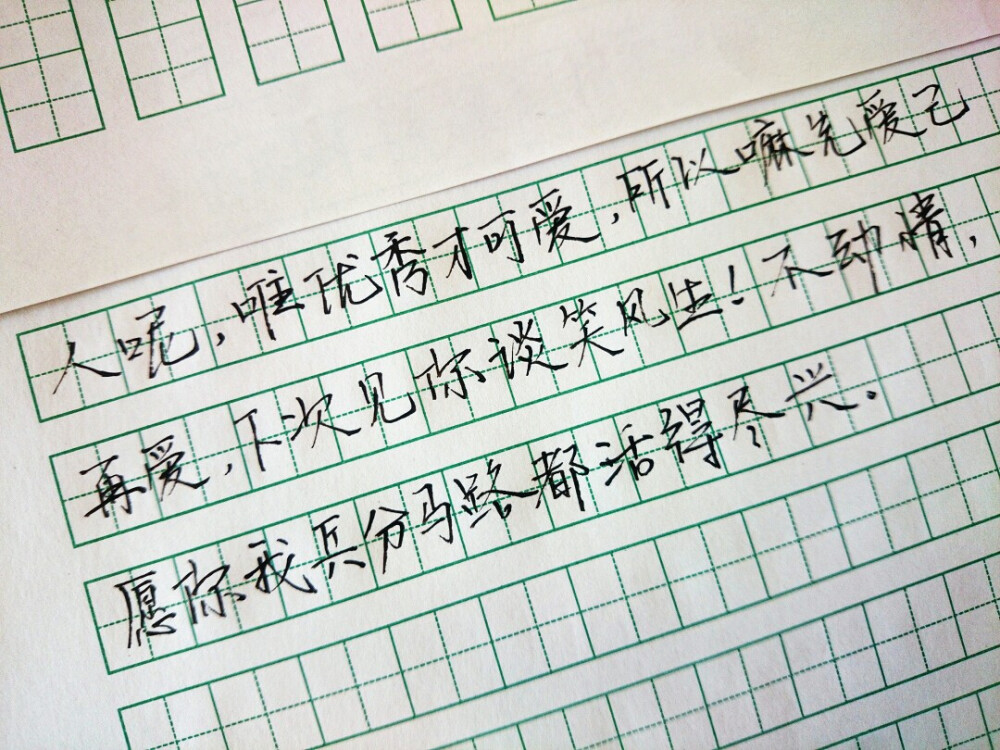 人呢，唯优秀才可爱，所以嘛先爱己
再爱，下次见你谈笑风生！不动情，
愿你我兵分马路都活得尽兴。